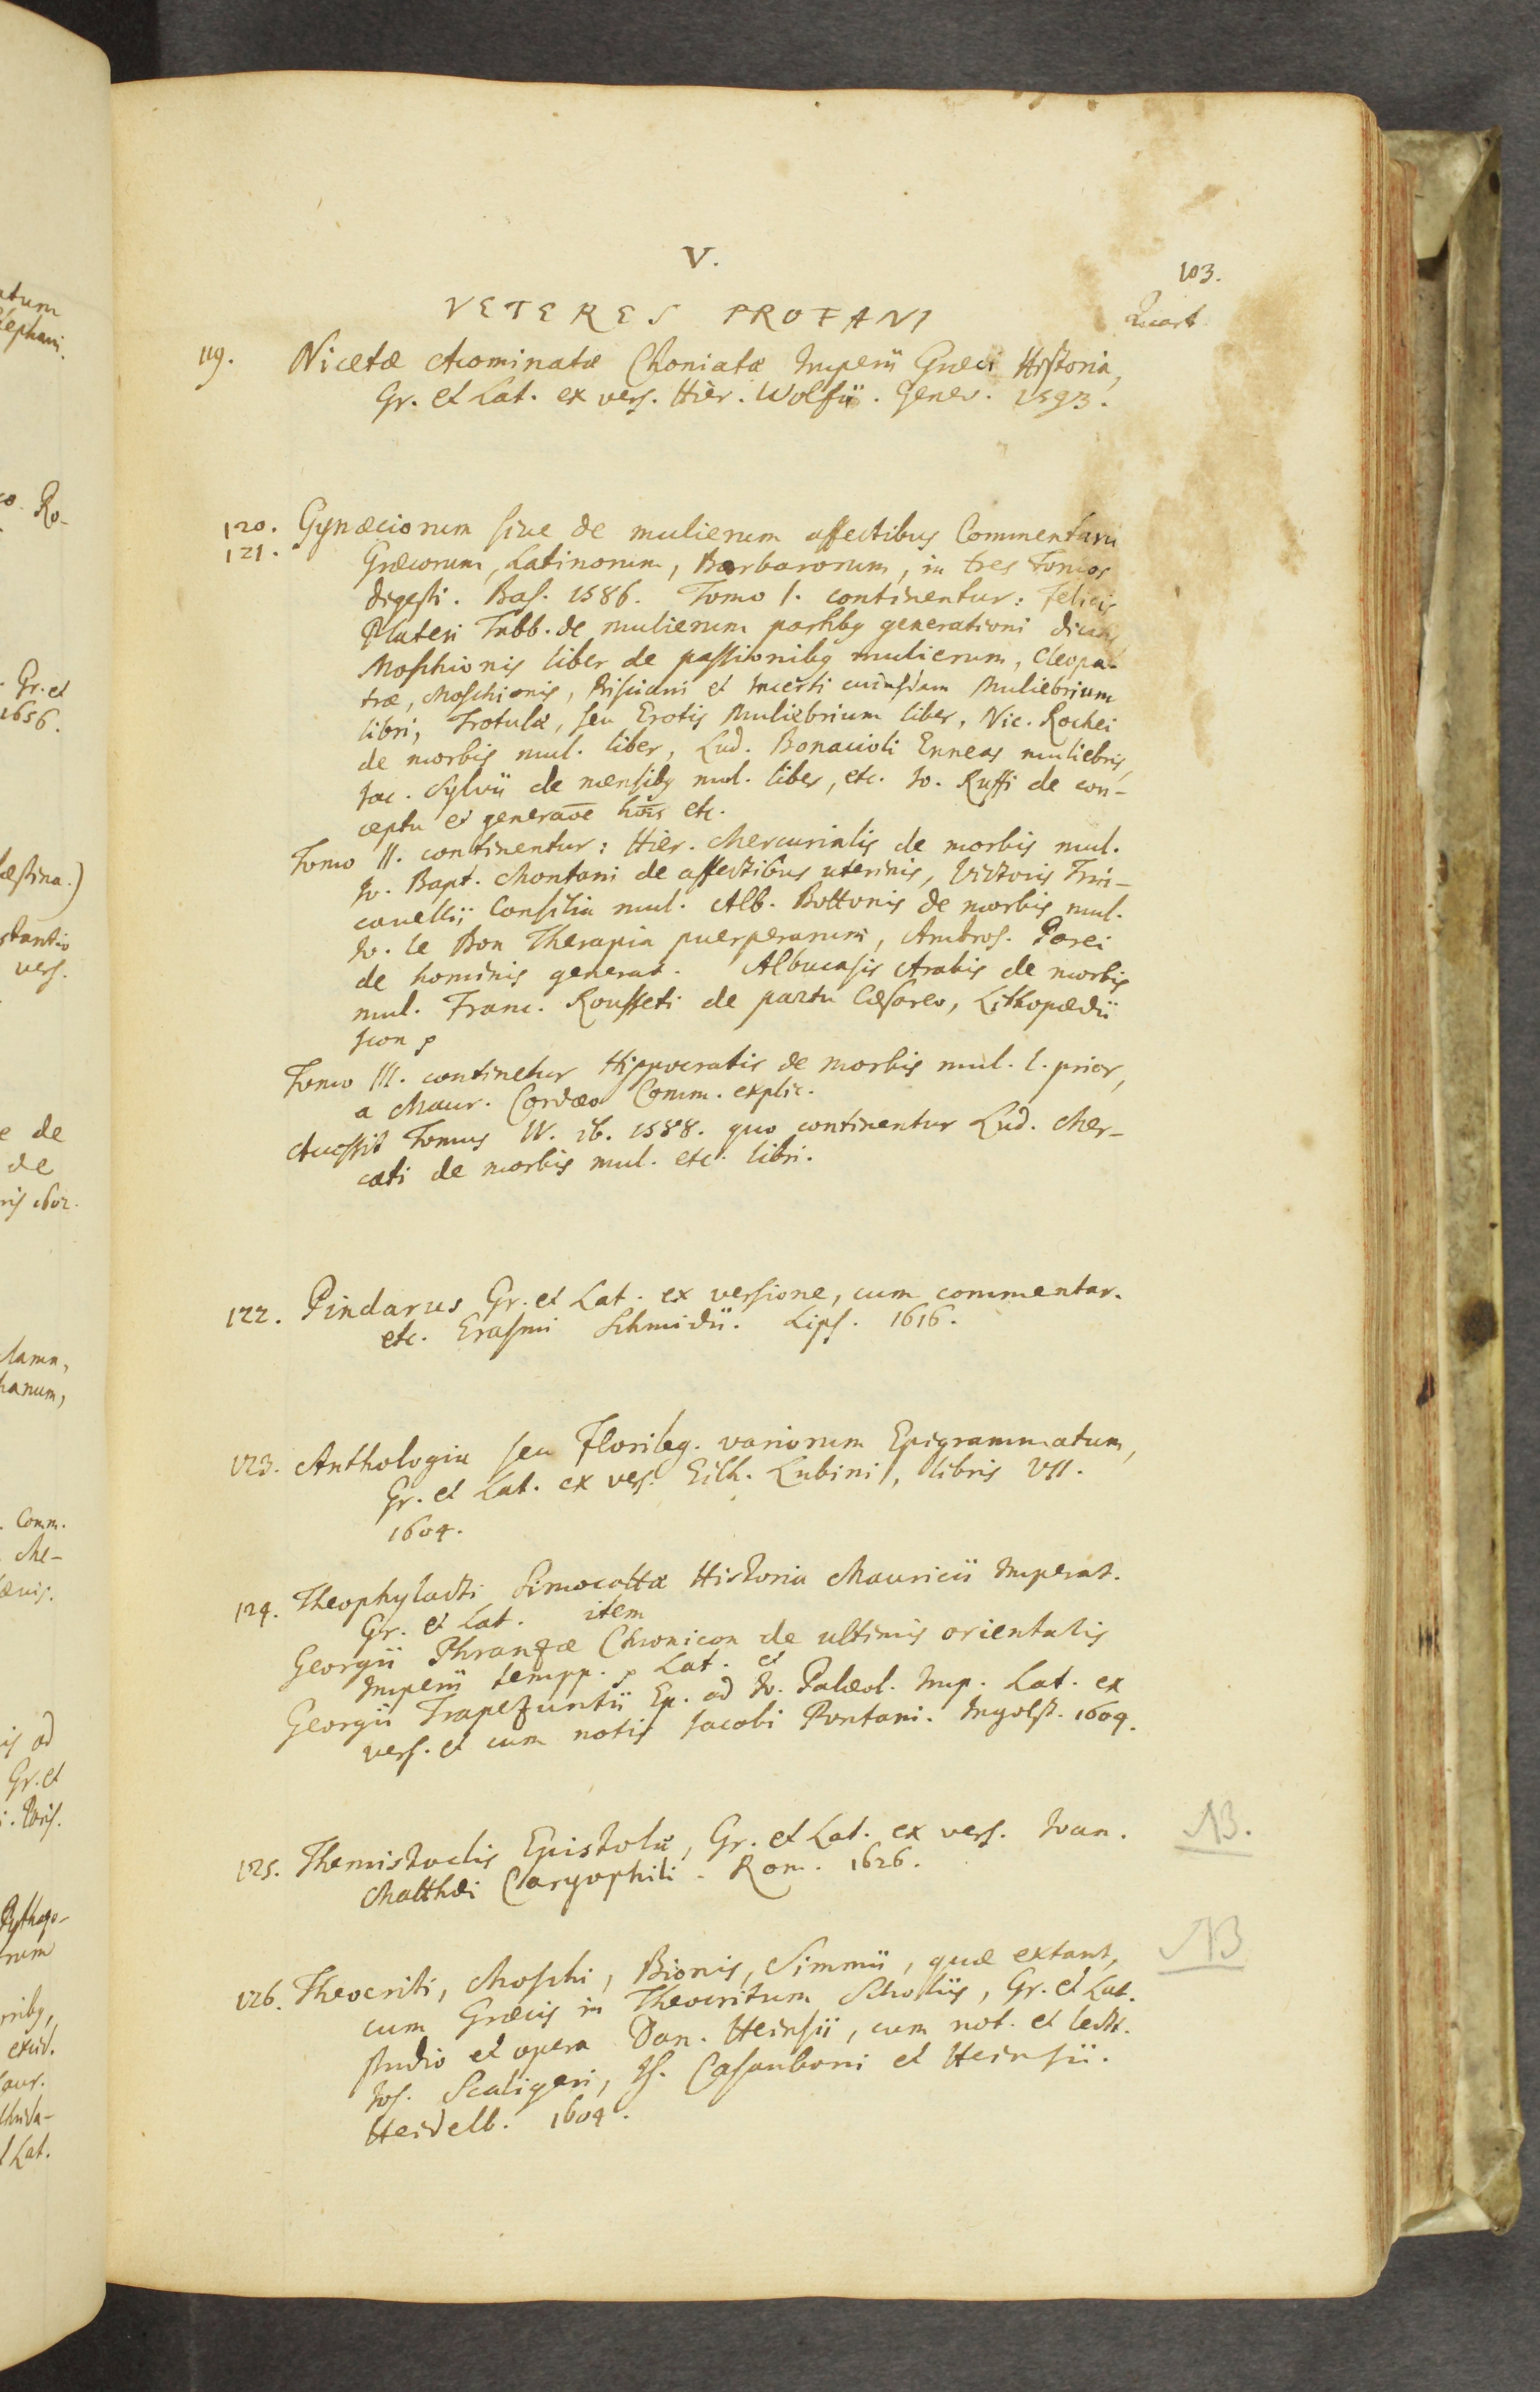 V.
103.
VETERES PROFANI
Quart
119. Nicetæ Acominatæ Choniatæ Imperii Græci Historia,
Gr. et Lat. ex vers. Hier. Wolfii. Genev. 1593.
120. Gynæciorum sive de mulierum affectibus Commentarii
121. Græcorum, Latinorum, Barbarorum, in tres Tomos
digesti. Bas. 1586. Tomo I. continentur: Felicis
Plateri Tabb. de mulierum partibq generationi dicatis
Moschionis liber de passionibq mulierum, Cleopa-
træ, Moschionis, Prisciani et Incerti cuiusdam Muliebrium
libri, Trotulæ, seu Erotis Muliebrium liber, Nic. Rochei
de morbis mul. liber, Lud. Bonacioli Enneas muliebris,
Jac. Sylvii de mensibq mul. liber, etc. Jo. Ruffi de con-
ceptu et generaoe hois etc.
Tomo II. continentur: Hier. Mercurialis de morbis mul.
Jo. Bapt. Montani de affectibus uterinis, Victoris Trin-
cavellii Consilia mul. Alb. Bottonis de morbis mul.
Jo. le Bon Therapia puerperarum, Ambros. Parei
de hominis generat. Albucasis Arabis de morbis
mul. Franc. Rousseti de partu Cæsareo, Lithopædii
Icon p
Tomo III. continetur Hippocratis de morbis mul. l. prior,
a Maur. Cordæo Comm. explic.
Accessit Tomus IV. ib. 1588. quo continentur Lud. Mer-
cati de morbis mul. etc. libri.
122. Pindarus Gr. et Lat. ex versione, cum commentar.
etc. Erasmi Schmidii. Lips. 1616.
123. Anthologia seu Florileg. variorum Epigrammatum,
Gr. et Lat. ex vers. Eilh. Lubini, libris VII.
1604.
124. Theophylacti Simocattæ Historia Mauricii Imperat.
Gr. et Lat. item
Georgii Phranzæ Chronicon de ultimis orientalis
Imperii tempp. p Lat. et
Georgii Trapezuntii Ep. ad Jo. Palæol. Imp. Lat. ex
vers. et cum notis Jacobi Pontani. Ingolst. 1604.
125. Themistoclis Epistolæ, Gr. et Lat. ex vers. Joan.
Matthæi Caryophili. Rom. 1626.
NB.
126. Theocriti, Moschi, Bionis, Simmii, quæ extant,
cum Græcis in Theocritum Scholiis, Gr. et Lat.
studio et opera Dan. Heinsii, cum not. et lectt.
Jos. Scaligeri, Is. Casauboni et Heinsii.
Heidelb. 1604.
NB